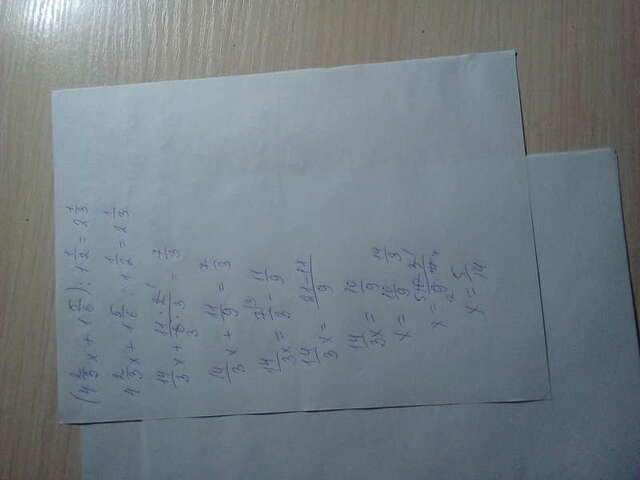 (4 2/3 x + 1 5/6) : 1 1/2 = 2 1/3
4 2/3 x + 1 5/6 : 1 1/2 = 2 1/3
14/3 x + 11 · 2/6 · 3 = 7/3
14/3 x + 11/9 = 7/3
14/3x = 7/3 - 11/9
14/3 x = 21-11/9
14/3x = 10/9
x = 10/9 14/3
x = 10 · 3/9 · 14
x = 5/14